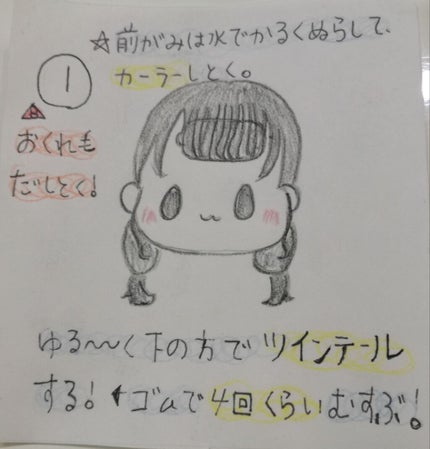 ☆前がみは水でかるくぬらして、
カーラーしとく。
1
おくれも
だしとく!
ゆる〜〜く下の方でツインテール
する!←ゴムで4回くらいむすぶ!